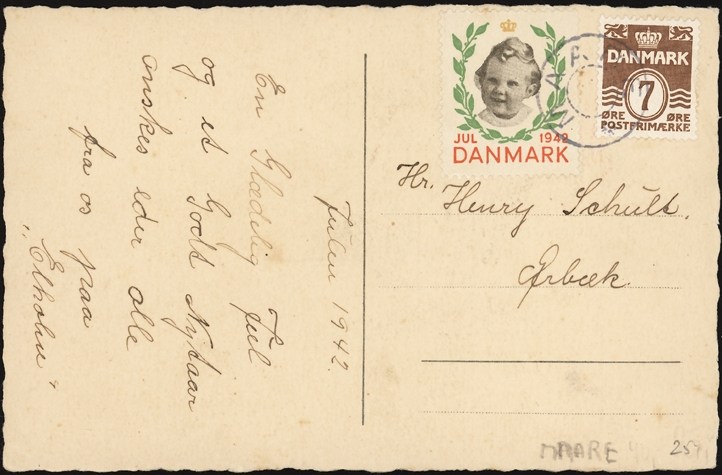 Julen 1942.
En Glædelig Jul
og et Godt Nytaar
ønskes eder alle
fra os paa
"Elholm"
JUL 1942
DANMARK
DANMARK
7
ØRE ØRE
POSTFRIMÆRKE
Hr. Henry Schult.
Ørbæk.
MARE